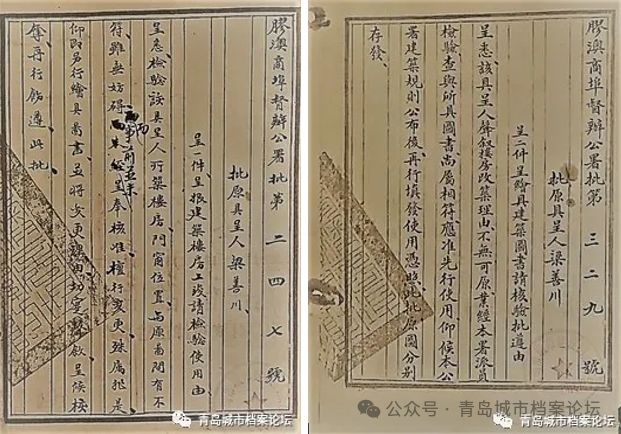 膠澳商埠督辦公署批第二四七號
批原具呈人梁善川、
呈一件呈报建築樓房工竣請檢驗使用由
呈悉檢驗該具呈人所築樓房門窗位置与原啚間有不
符、雖無妨碍、而事前並未經呈奉核准、擅行变更、殊屬非是、
仰即另行繪具啚書、並將变更理由切實聲敘呈候核
奪再行飭遵此批、
青岛城市档案论坛
膠澳商埠督辦公署批第三二九號
批原具呈人梁善川
呈二件呈繪具建築圖書請核驗批遵由
呈悉、該具呈人聲叙樓房改築理由、不無可原、業經本署派員
檢驗查與所具圖書尚屬相符應准先行使用仰候本公
署建築規則公布後、再行填發使用憑照、此批原圖分別
存發、
公众号·青岛城市档案论坛
青岛城市档案论坛